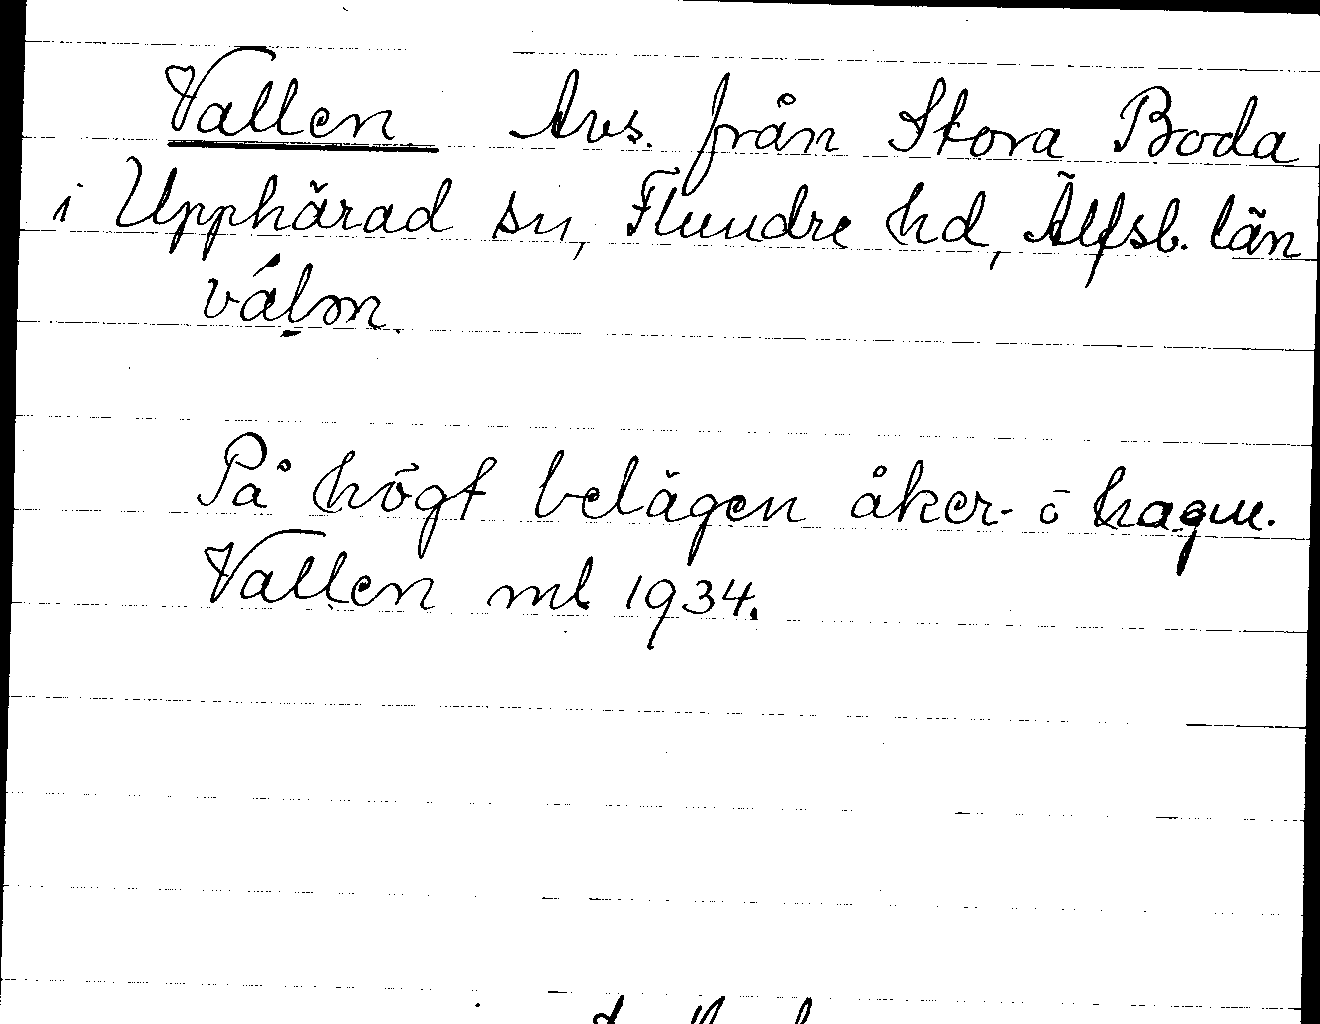 Vallen Avs. från Stora Boda
i Upphärad sn, Flundre hd, Älfsb. län
válṇ.
På högt belägen åker- o hagm.
Vallen ml 1934.